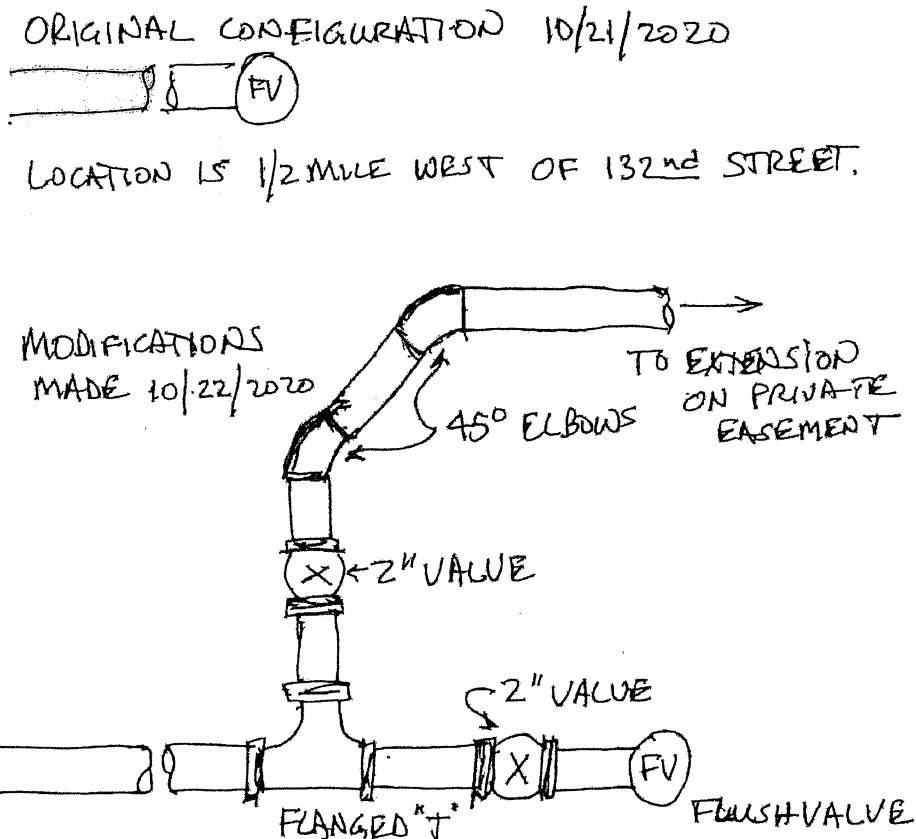 ORIGINAL CONFIGURATION 10/21/2020
FV
LOCATION IS 1/2 MILE WEST OF 132nd STREET.
MODIFICATIONS
MADE 10/22/2020
TO EXTENSION
ON PRIVATE
EASEMENT
45° ELBOWS
X
2" VALUE
2" VALUE
X
FV
FLANGED "T"
FLUSHVALVE